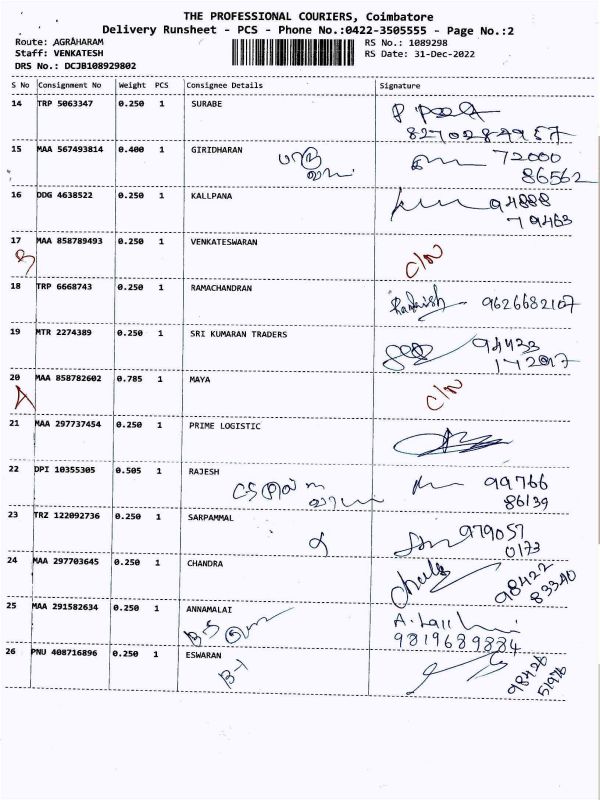 THE PROFESSIONAL COURIERS, Coimbatore
Delivery Runsheet - PCS - Phone No.:0422-3505555 - Page No.:2
Route: AGRAHARAM RS No.: 1089298
Staff: VENKATESH RS Date: 31-Dec-2022
DRS No.: DCJB108929802
S No Consignment No Weight PCS Consignee Details Signature
14 TRP 5063347 0.250 1 SURABE
15 MAA 567493814 0.400 1 GIRIDHARAN 72000
86562
16 DDG 4638522 0.250 1 KALLPANA 94888
79463
17 MAA 858789493 0.250 1 VENKATESWARAN C/N
18 TRP 6668743 0.250 1 RAMACHANDRAN 9626682107
19 MTR 2274389 0.250 1 SRI KUMARAN TRADERS 94433
172017
20 MAA 858782602 0.785 1 MAYA C/N
A
21 MAA 297737454 0.250 1 PRIME LOGISTIC
22 DPI 10355305 0.505 1 RAJESH 99766
86139
23 TRZ 122092736 0.250 1 SARPAMMAL 979057
0173
24 MAA 297703645 0.250 1 CHANDRA 98422
83340
25 MAA 291582634 0.250 1 ANNAMALAI
9819689884
26 PNU 408716896 0.250 1 ESWARAN 98426
51976